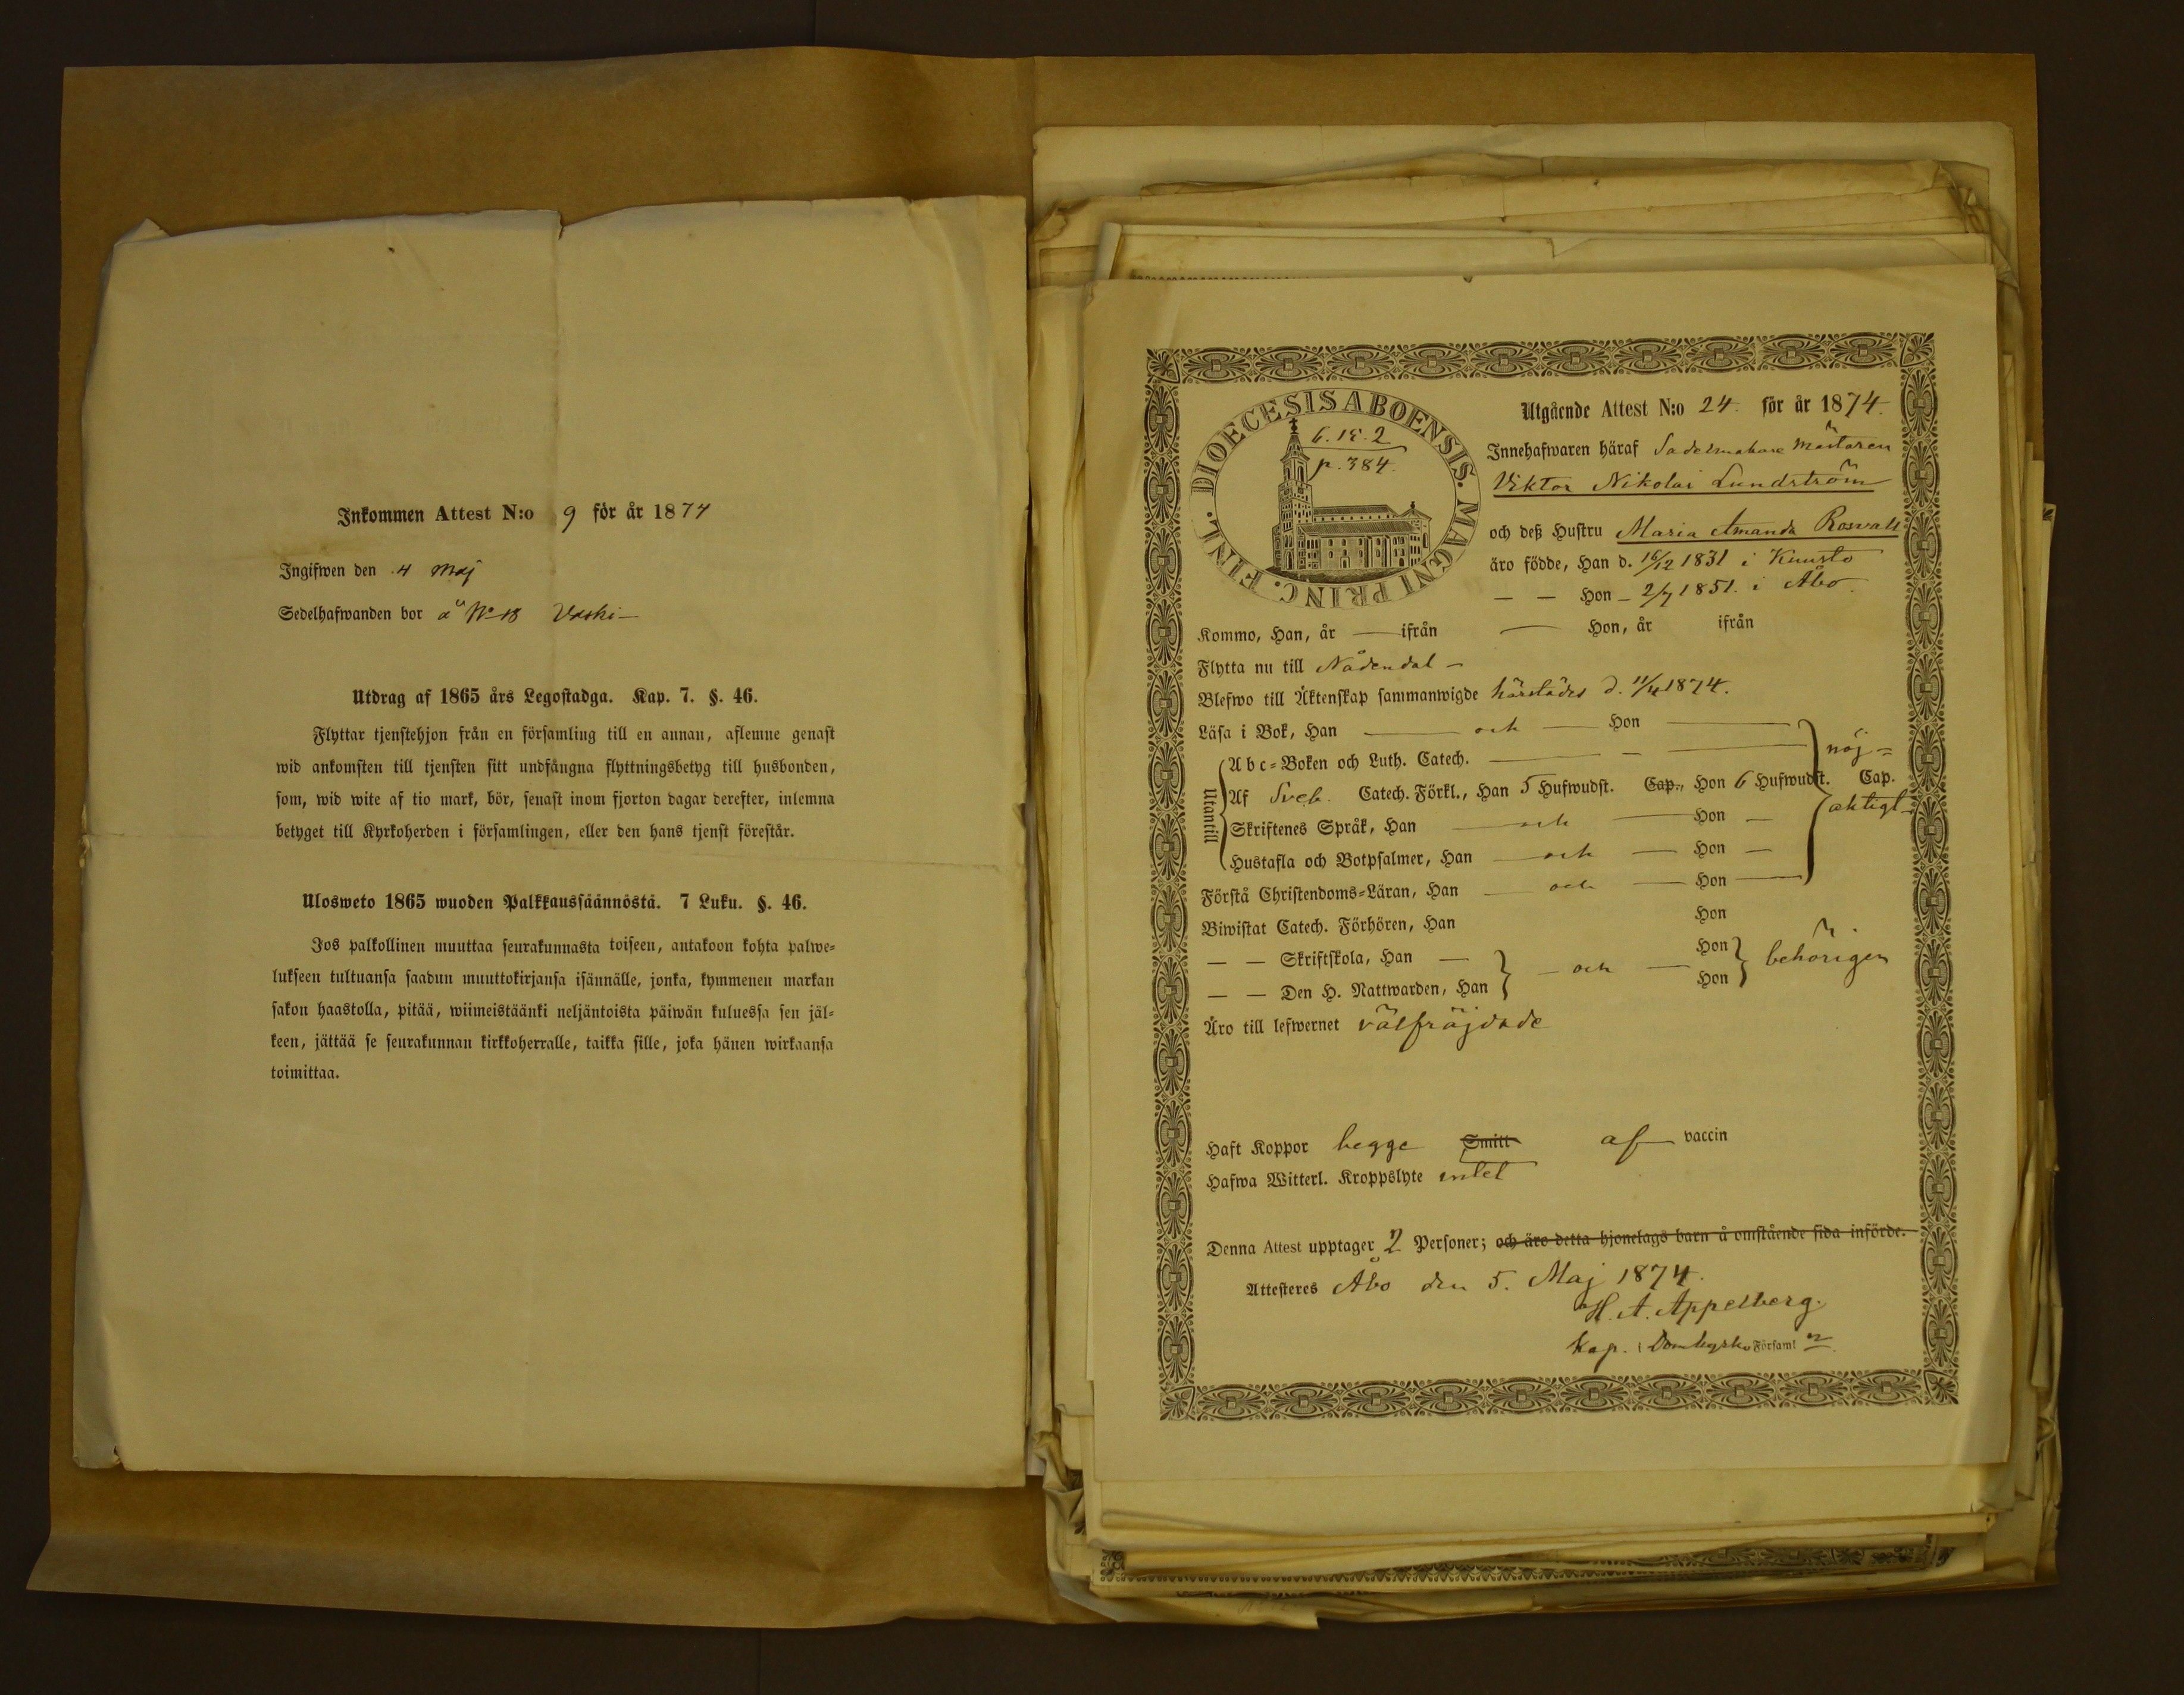 Inkommen Attest N:o 9 för år 1874
Ingifwen den 4 Maj
Sedelhafwanden bor å No 18
Utdrag af 1865 års Legostadga. Kap. 7. §. 46.
Flyttar tjenstehjon från en församling till en annan, aflemne genast
wid ankomsten till tjensten sitt undfångna flyttningsbetyg till husbonden,
som, wid wite af tio mark, bör, senast inom fjorton dagar derefter, inlemna
betyget till Kyrkoherden i församlingen, eller den hans tjenst förestår.
Ulosweto 1865 wuoden Palkkaussäännöstä. 7 Luku. §. 46.
Jos palkollinen muuttaa seurakunnasta toiseen, antakoon kohta palwe-
lukseen tultuansa saadun muuttokirjansa isännälle, jonka, kymmenen markan
sakon haastolla, pitää, wiimeistäänki neljäntoista päiwän kuluessa sen jäl-
keen, jättää se seurakunnan kirkkoherralle, taikka sille, joka hänen wirkaansa
toimittaa.
DIOECESIS ABOENSIS. MAGNI PRINC. FINL.
p. 384.
Utgående Attest N:o 24. för år 1874.
Innehafwaren häraf Sadelmakare Mästaren
Viktor Nikolai Lundström
och deß Hustru Maria Amanda Rosvall
äro födde, Han d. 16/12 1831 i Kuusto
— — Hon – 2/7 1851. i Åbo.
Kommo, Han, år — ifrån — Hon, år ifrån
Flytta nu till Nådendal –
Blefwo till Äktenskap sammanwigde härstädes d. 11/4 1874.
Läsa i Bok, Han — och — Hon —
Utantill
Abc-Boken och Luth. Catech. — — —
nöj-
Af Sveb. Catech. Förkl., Han 5 Hufwudst. Cap., Hon 6 Hufwudst. Cap.
aktigt
Skriftenes Språk, Han — och — Hon —
Hustafla och Botpsalmer, Han — och — Hon —
Förstå Christendoms-Läran, Han — och — Hon —
Biwistat Catech. Förhören, Han Hon
— — Skriftskola, Han — Hon
— och — behörigen
— — Den H. Nattwarden, Han Hon
Äro till lefwernet välfräjdade
Haft Koppor begge Smitt af vaccin
Hafwa Witterl. Kroppslyte intet
Denna Attest upptager 2 Personer; och äro detta hjonelags barn å omstående sida införde.
Attesteres Åbo den 5. Maj 1874.
H. A. Appelberg.
Kap. i Domkyrko Församl n